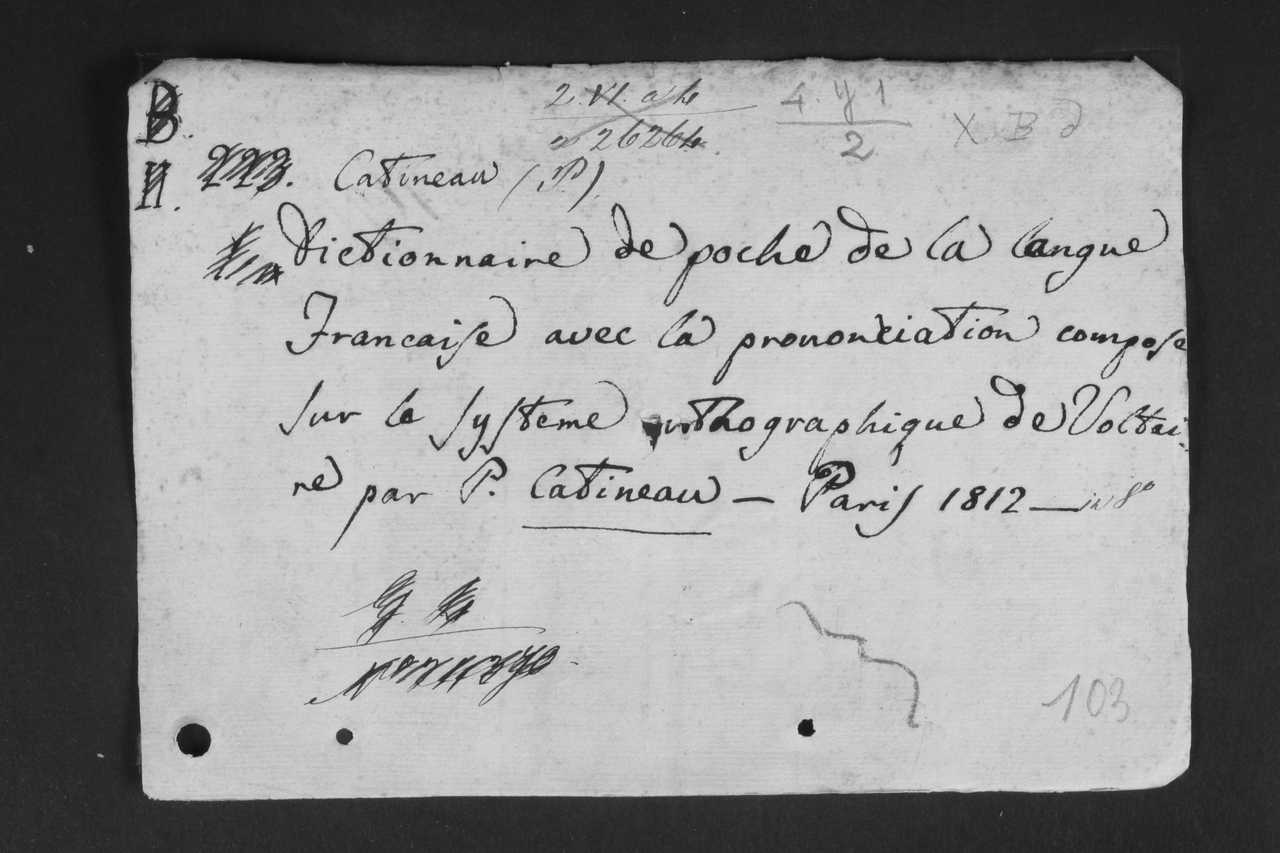 B
2. VI. a 4
26264
4. y 1
2
X B d
II. 223. Catineau (P)
Dictionnaire de poche de la langue
Francaise avec la prononciation compose
sur le systeme orthographique de Voltai-
re par P. Catineau — Paris 1812 — in 8º
103